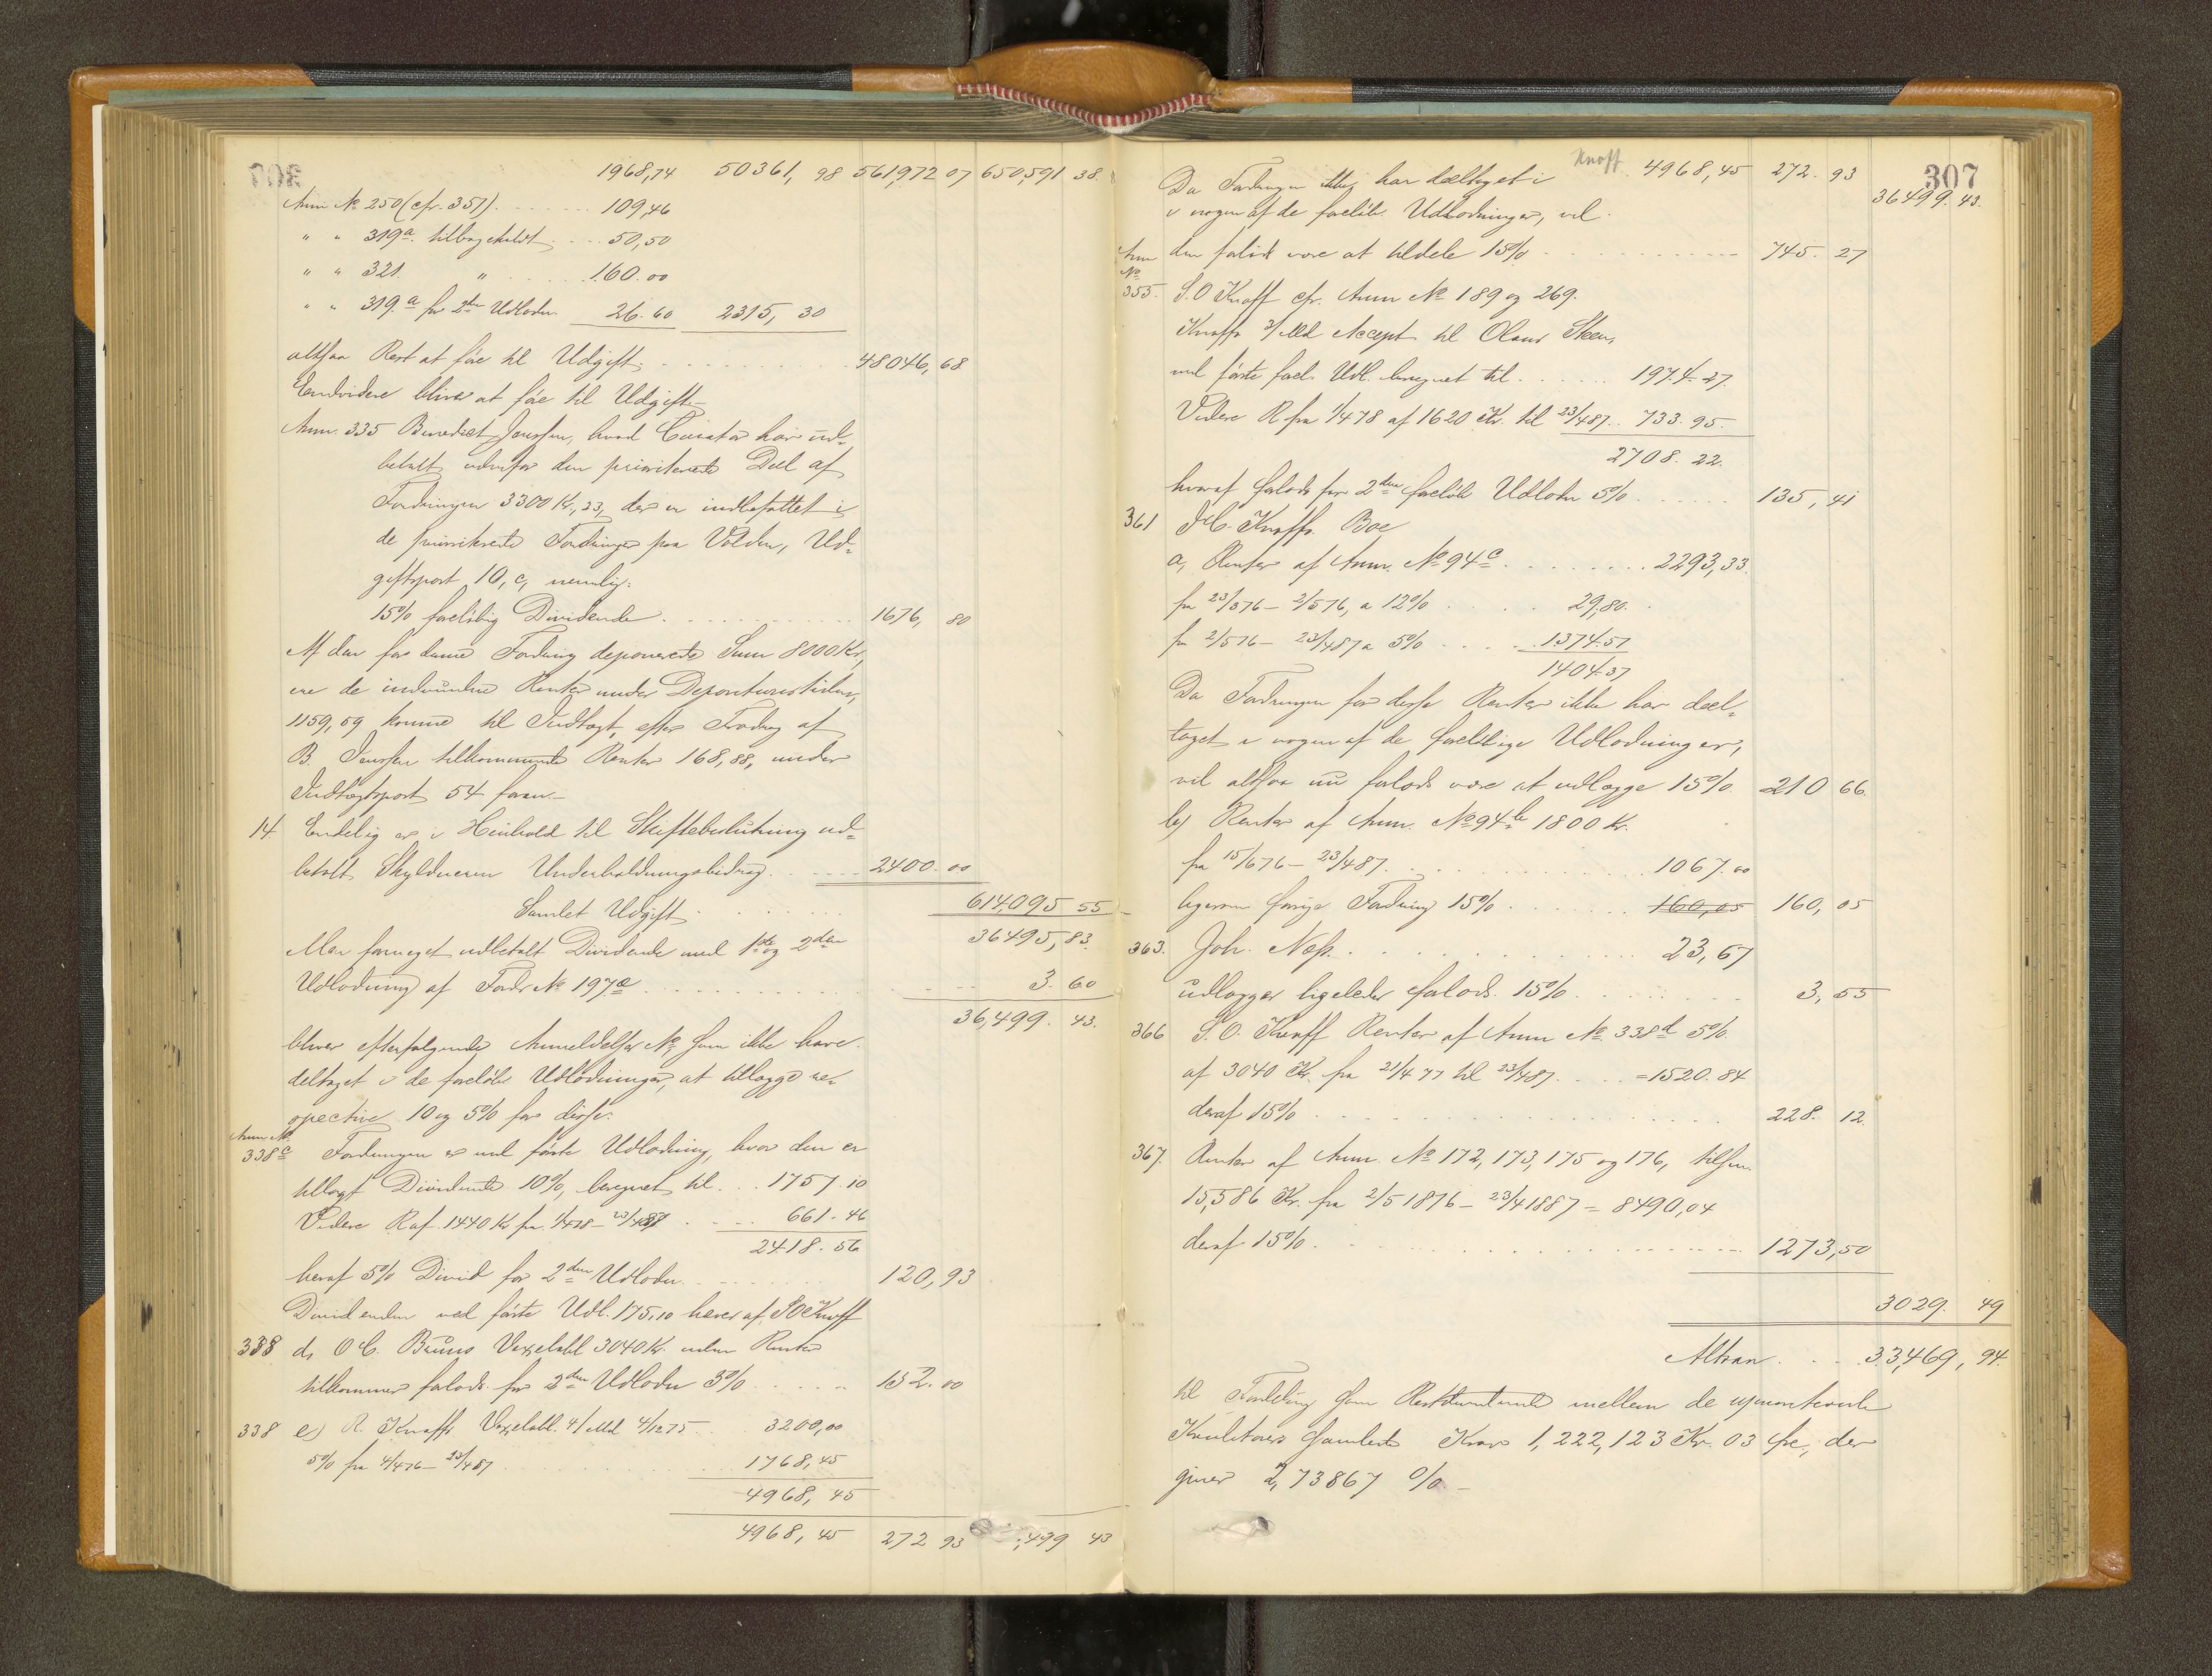 1968,74 50361, 98 561,972 07 650,591 38.
Anm No 250 (cfr. 351) 109,46
" " 319a tilbageholdt 50,50
" " 321 " 160.00
" " 319.a for 2den Udlodn. 26.60 2315, 30
altsaa Rest at føre til Udgift 48046, 68
Endvidere bliver at føre til Udgift
Anm. 335 Benedict Jenssen, hvad Curator har ud-
betalt udenfor den prioriterede Deel af
Fordringen 3300 Kr, 23, der er indbefattet i
de prioriterede Fordringer paa Volden, Ud-
giftspost 10, c, nemlig:
15% foreløbig Dividende 1676, 80
Af den for denne Fordring deponerede Sum 8000 Kr,
ere de indvundne Renter under Depositumstiden,
1159,59 komne til Indtægt, efter Fradrag af
B. Jenssen tilkommende Renter 168,88, under
Indtægtspost 54 foran.
14. Endelig er i Henhold til Skiftebeslutning ud-
betalt Skyldneren Underholdningsbidrag 2400.00
Samlet Udgift 614,095 55
36495,83.
Udlodning af Fordr No 197a 3.60
36,499. 43.
bliver efterfølgende Anmeldelser No, som ikke have
deltaget i de foreløb. Udlodninger, at tillægge re-
spective 10 og 5% for disse:
Anm No
338c Fordringen er ved første Udlodning, hvor den er
tillagt Dividende 10%, beregnet til 1757.10
Videre R af 1440 Kr fra 1/478 - 23/487 661.46
2418.56
heraf 5% Divid for 2den Udlodn. 120,93
Dividenden ved første Udl. 175,10 hæves af S O Knoff
338 d, O C. Bruuns Vexelobl 3040 Kr. uden Renter
tilkommer forlods for 2den Udlodn 5% 152.00
338 e) R. Knoffs Vexelobl. 4/Md 4/1275 3200,00
5% fra 4/476 - 23/487 1768,45
4968, 45
4968, 45 272 93 ,499 43
307
Knoff 4968,45 272. 93
36499. 43.
Da Fordringen ikke har deeltaget i
i nogen af de foreløb. Udlodninger, vil
den forlods være at tildele 15% 745. 27
Anm
No
355. S. O Knoff cfr. Anm No 189 og 269.
Knoffs 3/Md Accept til Olaus Steen,
ved første forel. Udl. beregnet til 1974.27.
Videre R fra 1/478 af 1620 Kr. til 23/487 733.95.
2708.22.
hvoraf forlods for 2den foreløb Udlodn 5% 135, 41
361 Knoffs Boe
a, Renter af Anm. No 94c 2293,33.
fra 23/376 - 2/576, a 12% 29,80.
fra 2/576 - 23/487 a 5% 1374.57
1404.37
Da Fordringen for disse Renter ikke har deel-
taget i nogen af de foreløbige Udlodninger,
vil altsaa nu forlods være at udlægge 15% 210 66.
b) Renter af Anm. No 94b 1800 Kr.
fra 15/676 - 23/487 1067.00
ligesom forrige Fordring 15% 160,05 160, 05
363. Joh. Næss 23,67
udlægges ligeledes forlods 15% 3, 55
366 S. O. Knoff Renter af Anm No 338d 5%
af 3040 Kr. fra 21/4 77 til 23/487 =1520.84
deraf 15% 228. 12.
367. Renter af Anm. No 172, 173, 175 og 176, tilsm.
15,586 Kr. fra 2/5 1876 - 23/4 1887 = 8490,04
deraf 15% 1273,50
3029. 49
Altsaa 33,469, 94.
til Fordeling som Restdividende mellem de uprioriterede
Kreditorers samlede Krav 1,222,123 Kr. 03 Øre, der
giver 2,73867 %